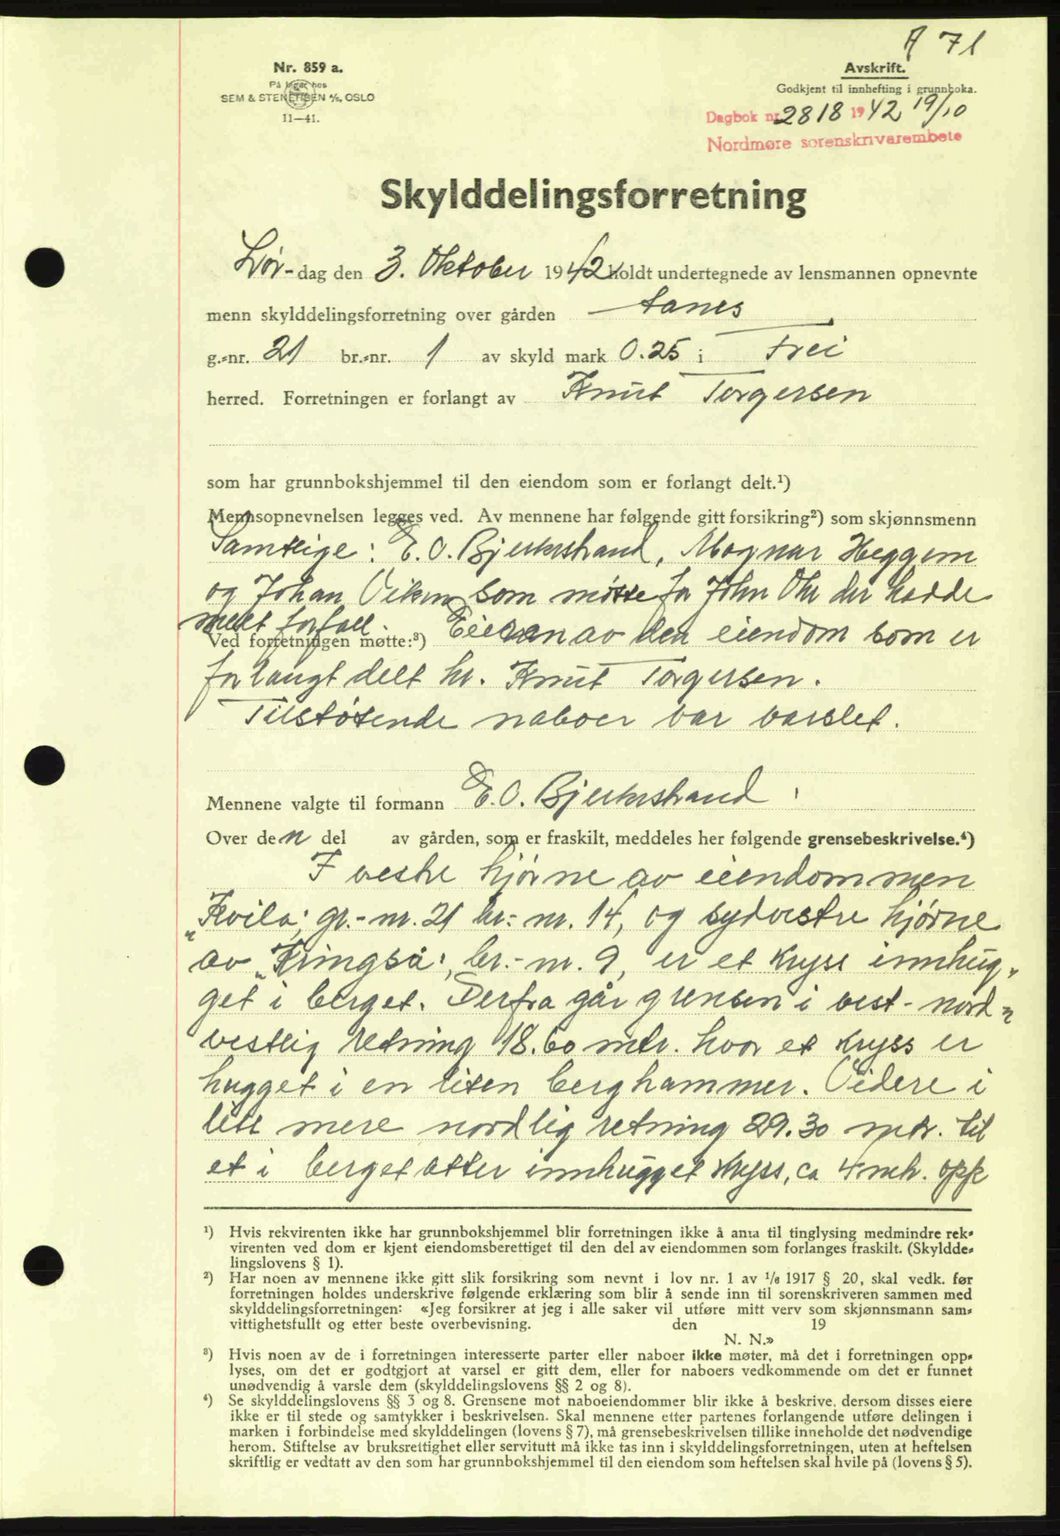 A 71
Nr. 859 a.
På lager hos
SEM & STENERSEN A/S, OSLO
11—41.
Avskrift.
Godkjent til innhefting i grunnboka.
Dagbok nr. 2818 1942 19/10
Nordmøre sorenskrivarembete
Skylddelingsforretning
Lør-dag den 3. Oktober 1942 holdt undertegnede av lensmannen opnevnte
menn skylddelingsforretning over gården Aanes
g.-nr. 21 br.-nr. 1 av skyld mark 0.25 i Frei
herred. Forretningen er forlangt av Knut Torgersen
som har grunnbokshjemmel til den eiendom som er forlangt delt.¹)
Mennsopnevnelsen legges ved. Av mennene har følgende gitt forsikring²) som skjønnsmenn
Samtlige: E. O. Bjerkestrand, Magnar Heggem
og Johan Viken som møtte for John Ohr der hadde
meldt forfall.
Ved forretningen møtte:³) Eieren av den eiendom som er
forlangt delt hr. Knut Torgersen.
Tilstøtende naboer var varslet.
Mennene valgte til formann E. O. Bjerkestrand
Over den del av gården, som er fraskilt, meddeles her følgende grensebeskrivelse.⁴)
I vestre hjørne av eiendommen
„Kvila", gr.-nr. 21 br.-nr. 14, og sydvestre hjørne
av „Kringsjå", br.-nr. 9, er et kryss innhug-
get i berget. Derfra går grensen i vest-nord-
vestlig retning 18.60 mtr. hvor et kryss er
hugget i en liten berghammer. Videre i
litt mere nordlig retning 29.30 mtr. til
et i berget atter innhugget kryss, ca 4 mtr. opp
¹) Hvis rekvirenten ikke har grunnbokshjemmel blir forretningen ikke å anta til tinglysing medmindre rek-
virenten ved dom er kjent eiendomsberettiget til den del av eiendommen som forlanges fraskilt. (Skyldde-
lingslovens § 1).
²) Har noen av mennene ikke gitt slik forsikring som nevnt i lov nr. 1 av 1/6 1917 § 20, skal vedk. før
forretningen holdes underskrive følgende erklæring som blir å sende inn til sorenskriveren sammen med
skylddelingsforretningen: «Jeg forsikrer at jeg i alle saker vil utføre mitt verv som skjønnsmann sam-
vittighetsfullt og etter beste overbevisning. den 19
N. N.»
³) Hvis noen av de i forretningen interesserte parter eller naboer ikke møter, må det i forretningen opp-
lyses, om det er godtgjort at varsel er gitt dem, eller for naboers vedkommende om det er funnet
unødvendig å varsle dem (skylddelingslovens §§ 2 og 8).
⁴) Se skylddelingslovens §§ 3 og 8. Grensene mot naboeiendommer blir ikke å beskrive, dersom disses eiere
ikke er til stede og samtykker i beskrivelsen. Skal mennene etter partenes forlangende utføre delingen i
marken i forbindelse med skylddelingen (lovens § 7), må grensebeskrivelsen tillike inneholde det nødvendige
herom. Stiftelse av bruksrettighet eller servitutt må ikke tas inn i skylddelingsforretningen, uten at heftelsen
skriftlig er vedtatt av den som har grunnbokshjemmel til den eiendom som heftelsen skal hvile på (lovens § 5).